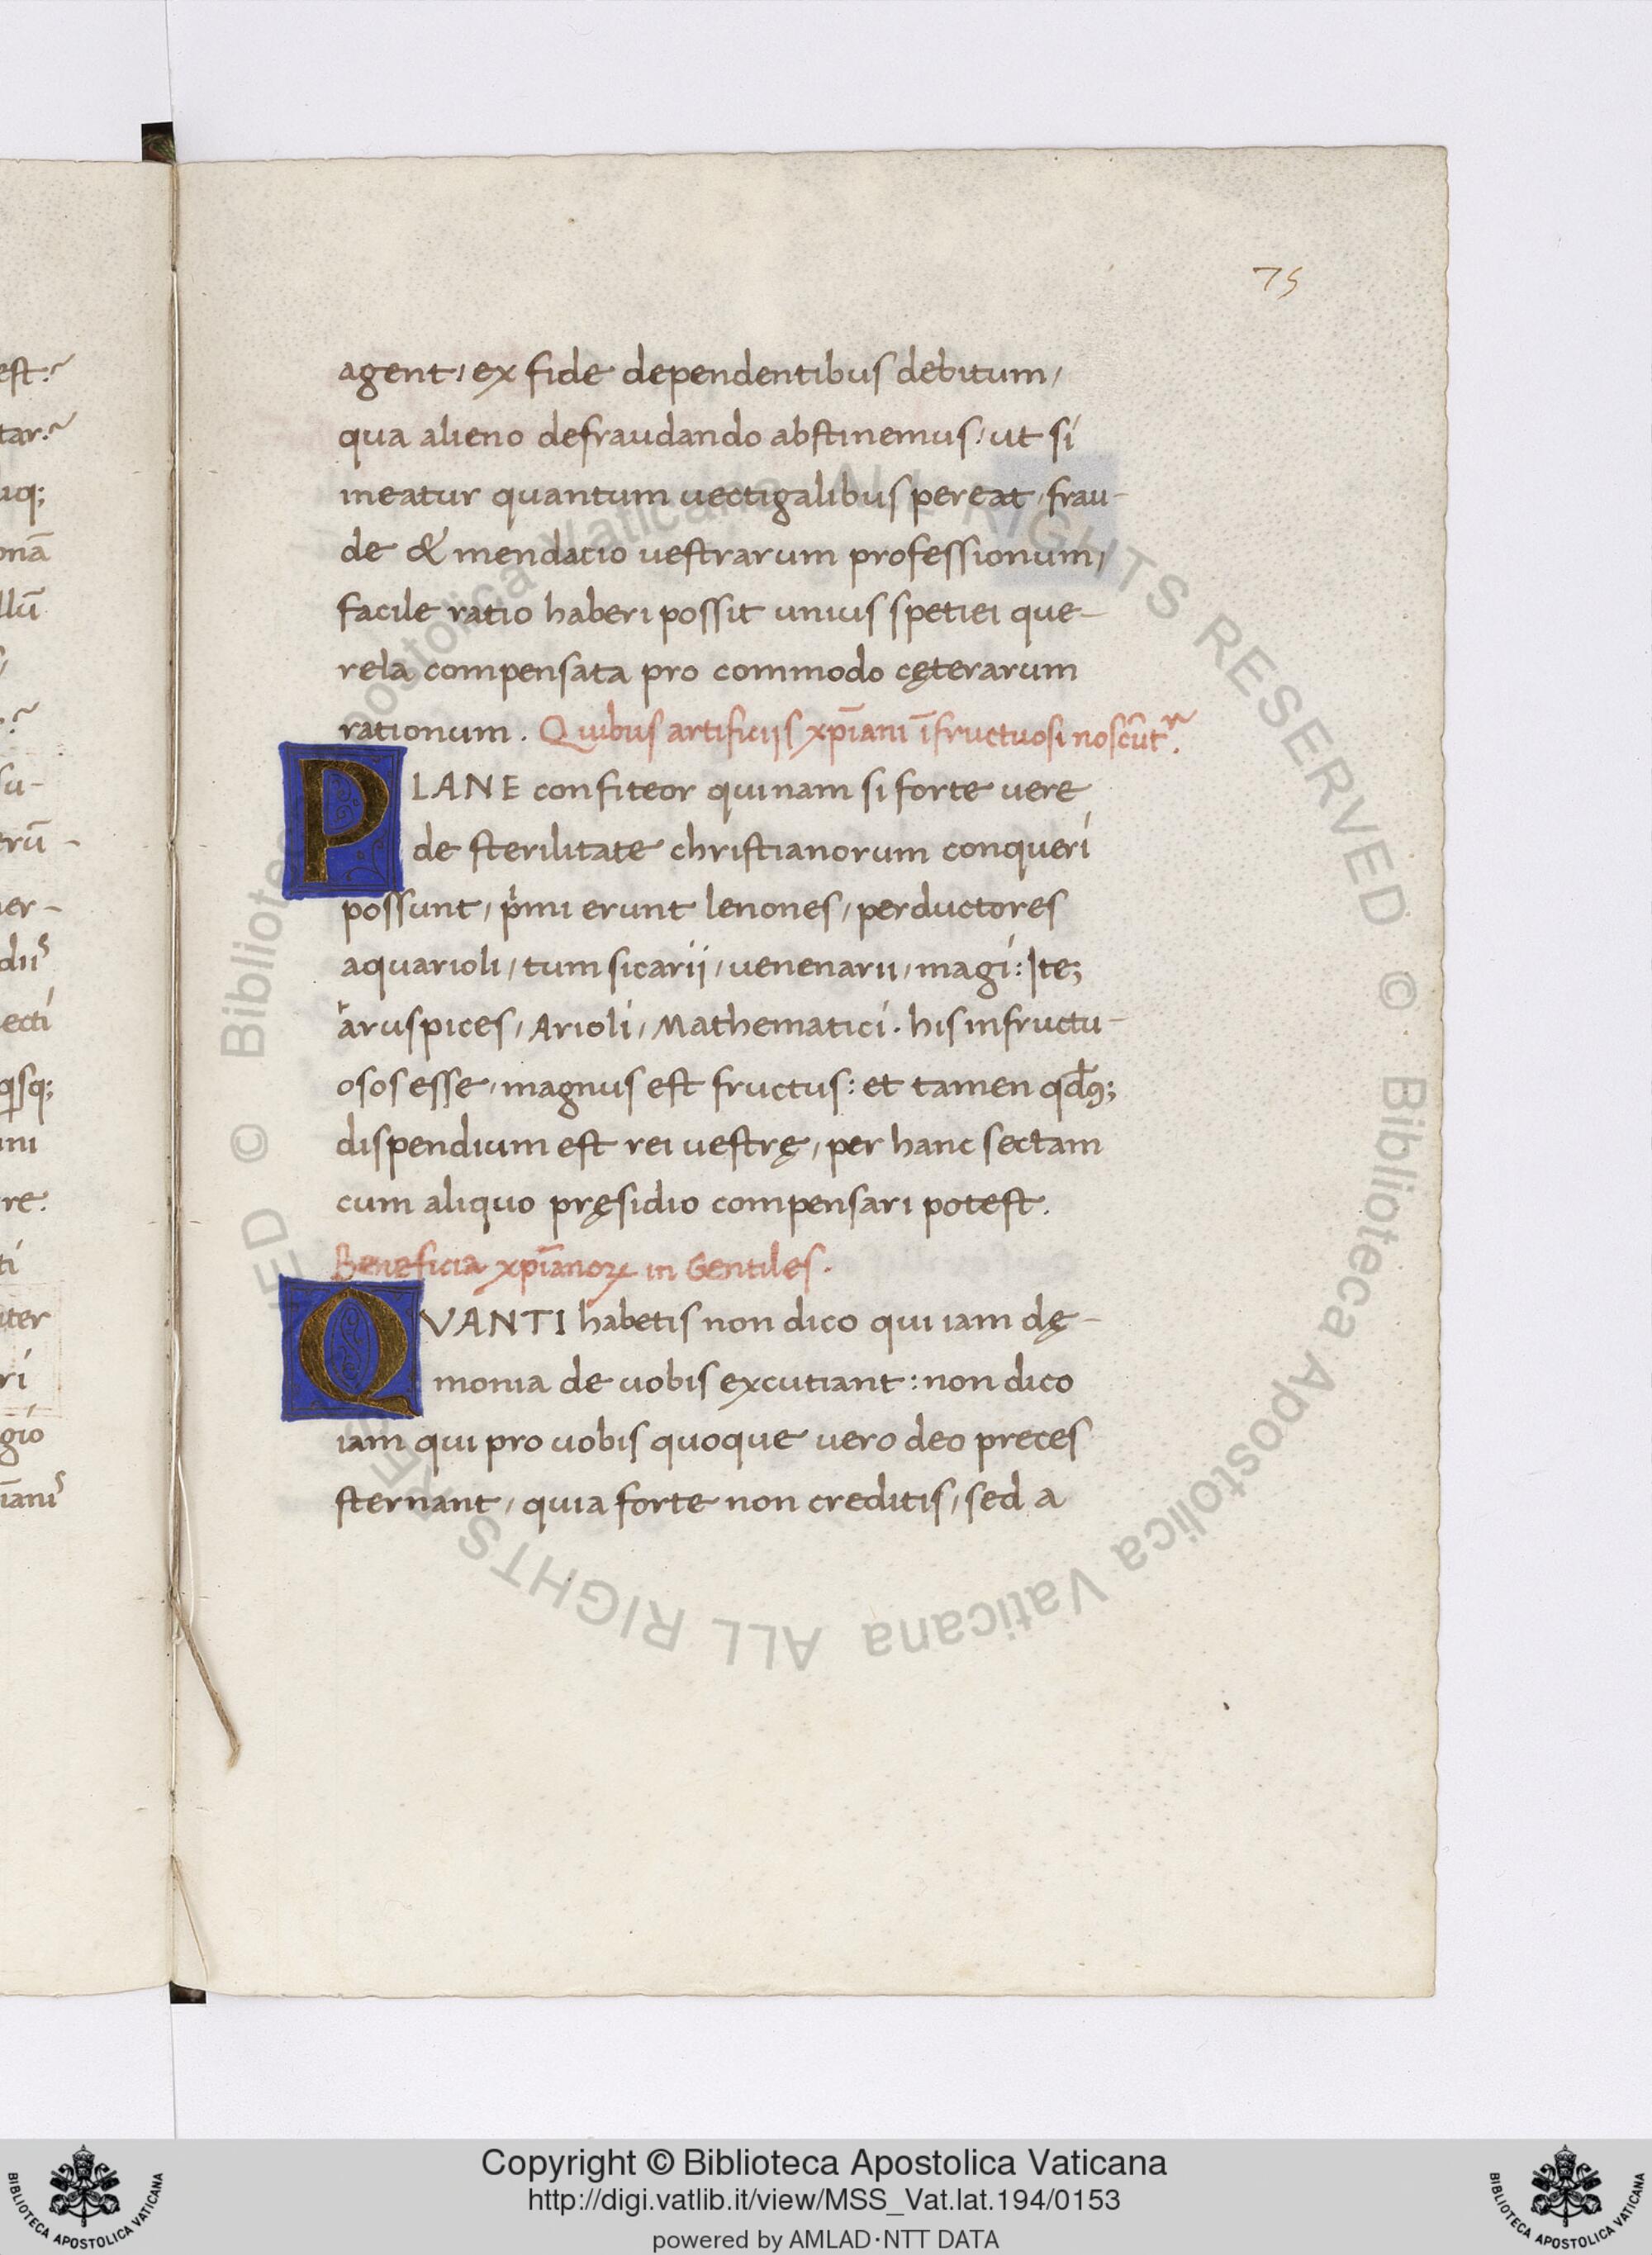 75
agent, ex fide dependentibus debitum,
qua alieno defraudando abstinemus: ut si
ineatur quantum uectigalibus pereat, frau-
de & mendacio uestrarum professionum,
facile ratio haberi possit unius spetiei que-
rela compensata pro commodo cęterarum
rationum. Quibus artificiis xp̄iani īfructuosi noscūtᷣ.
PLANE confiteor quinam si forte uere
de sterilitate christianorum conqueri
possunt, pͥmi erunt lenones, perductores
aquarioli, tum sicarii, uenenarii, magi: Ite;
aruspices, Arioli, Mathematici. his infructu-
osos esse, magnus est fructus: et tamen
dispendium est rei uestrę, per hanc sectam
cum aliquo pręsidio compensari potest.
Beneficia xp̄ianoꝝ in Gentiles.
QVANTI habetis non dico qui iam dę-
monia de uobis excutiant: non dico
iam qui pro uobis quoque uero deo preces
sternant, quia forte non creditis, sed a
est:
tar:
uq;
onā
llū
su-
trū -
er-
dii
ecti
qisq;
ini
re.
ti
iter
ri
gio
iani
© Biblioteca Apostolica Vaticana ALL RIGHTS RESERVED © Biblioteca Apostolica Vaticana ALL RIGHTS RESERVED
BIBLIOTECA APOSTOLICA VATICANA
Copyright © Biblioteca Apostolica Vaticana
http://digi.vatlib.it/view/MSS_Vat.lat.194/0153
powered by AMLAD·NTT DATA
BIBLIOTECA APOSTOLICA VATICANA